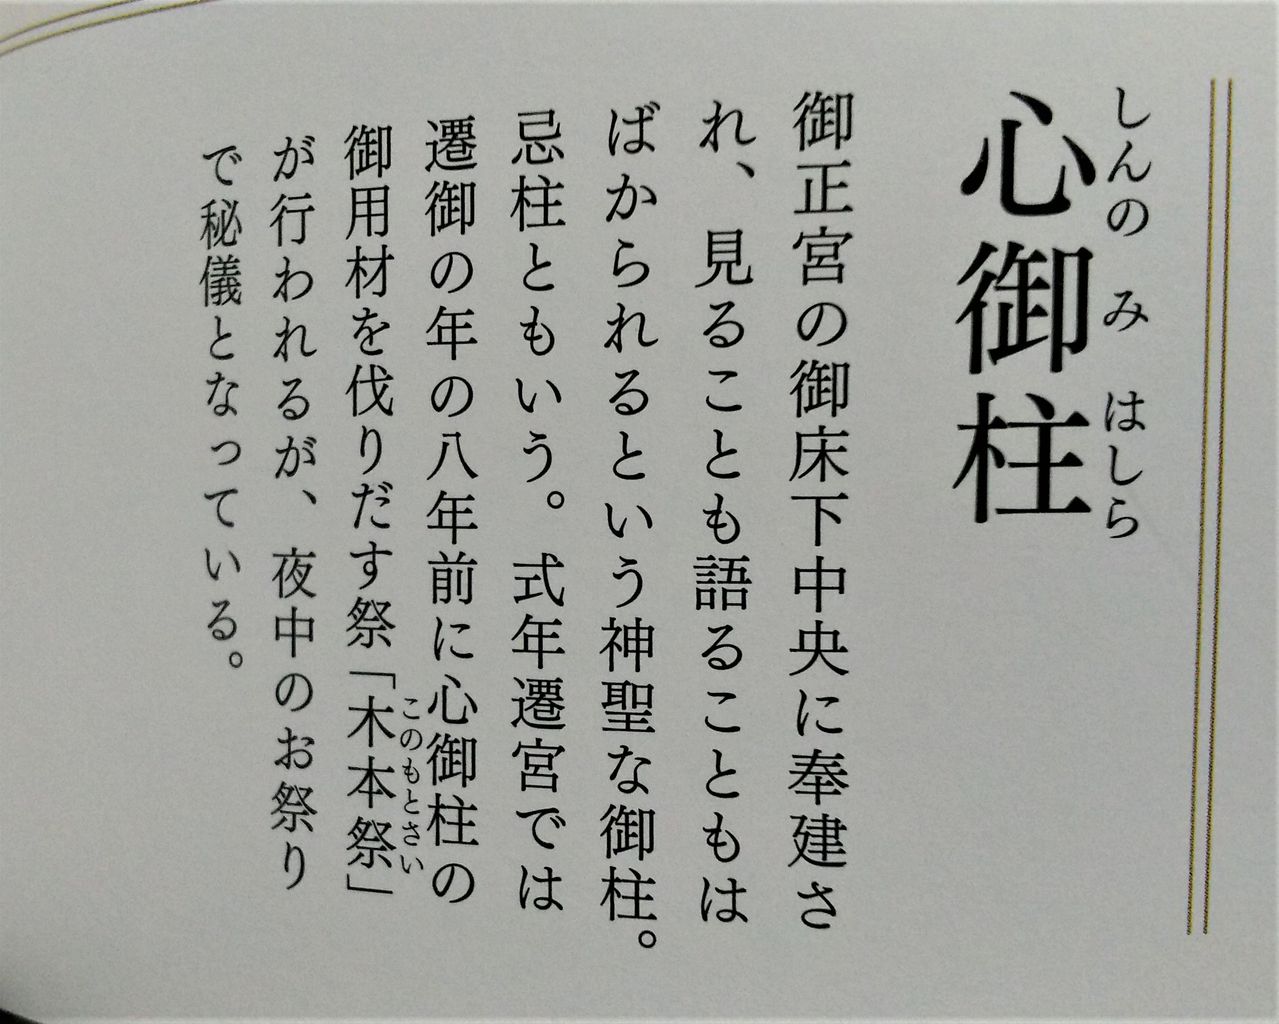 心御柱
しんのみはしら
御正宮の御床下中央に奉建さ
れ、見ることも語ることもは
ばかられるという神聖な御柱。
忌柱ともいう。式年遷宮では
遷御の年の八年前に心御柱の
御用材を伐りだす祭「木本祭」
このもとさい
が行われるが、夜中のお祭り
で秘儀となっている。